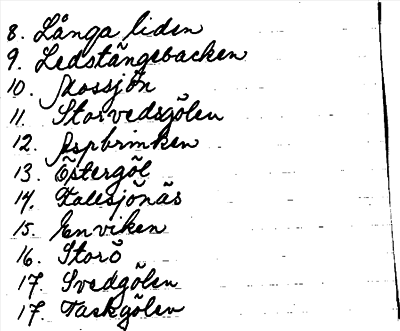 8. Långa liden
9. Ledstångsbacken
10. Mossjön
11. Storvedsgölen
12. Aspbrinken
13. Östergöl
14. Kallsjönäs
15. Enviken
16. Storö
17. Svedgölen
17. Taskgölen